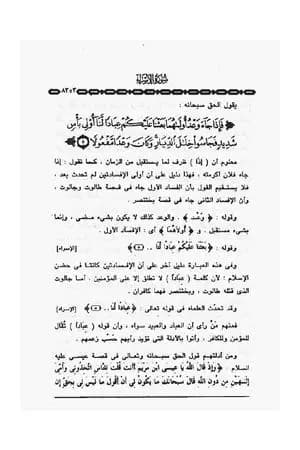 سورة الإسراء
٨٣٥٣
يقول الحق سبحانه :
﴿ فَإِذَا جَاءَ وَعْدُ أُولَاهُمَا بَعَثْنَا عَلَيْكُمْ عِبَادًا لَّنَا أُولِي بَأْسٍ
شَدِيدٍ فَجَاسُوا خِلَالَ الدِّيَارِ وَكَانَ وَعْدًا مَّفْعُولًا ﴾
معلوم أن ( إذا ) ظرف لما يستقبل من الزمان ، كما تقول : إذا
جاء فلان أكرمته ، فهذا دليل على أن أولى الإفسادتين لم تحدث بعد ،
فلا يستقيم القول بأن الفساد الأول جاء في قصة طالوت وجالوت ،
وأن الإفساد الثاني جاء في قصة بختنصر .
وقوله : ﴿ وَعْدُ ﴾ . والوعد كذلك لا يكون بشيء مضى ، وإنما
بشيء مستقبل . و ﴿ أُولَاهُمَا ﴾ أي : الإفساد الأول .
وقوله : ﴿ بَعَثْنَا عَلَيْكُمْ عِبَادًا لَّنَا .. ﴾ [الإسراء]
وفي هذه العبارة دليل آخر على أن الإفسادتين كانتا في حضن
الإسلام ؛ لأن كلمة ( عبادا ) لا تطلق إلا على المؤمنين ، أما جالوت
الذي قتله طالوت ، وبختنصر فهما كافران .
وقد تحدث العلماء في قوله تعالى : ﴿ عِبَادًا لَّنَا .. ﴾ [الإسراء]
فمنهم مَنْ رأى أن العباد والعبيد سواء ، وأن قوله ( عبادا ) تُقَال
للمؤمن وللكافر ، وأتوا بالأدلة التي تؤيد رأيهم حسب زعمهم .
ومن أدلتهم قول الحق سبحانه وتعالى في قصة عيسى عليه
السلام : ﴿ وَإِذْ قَالَ اللَّهُ يَا عِيسَى ابْنَ مَرْيَمَ أَأَنتَ قُلْتَ لِلنَّاسِ اتَّخِذُونِي وَأُمِّيَ
إِلَٰهَيْنِ مِن دُونِ اللَّهِ قَالَ سُبْحَانَكَ مَا يَكُونُ لِي أَنْ أَقُولَ مَا لَيْسَ لِي بِحَقٍّ إِن